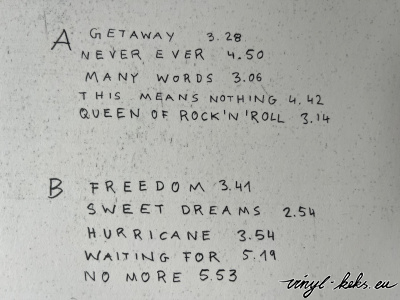 A GETAWAY 3.28
NEVER EVER 4.50
MANY WORDS 3.06
THIS MEANS NOTHING 4.42
QUEEN OF ROCK'N'ROLL 3.14
B FREEDOM 3.41
SWEET DREAMS 2.54
HURRICANE 3.54
WAITING FOR 5.19
NO MORE 5.53
vinyl-keks.eu